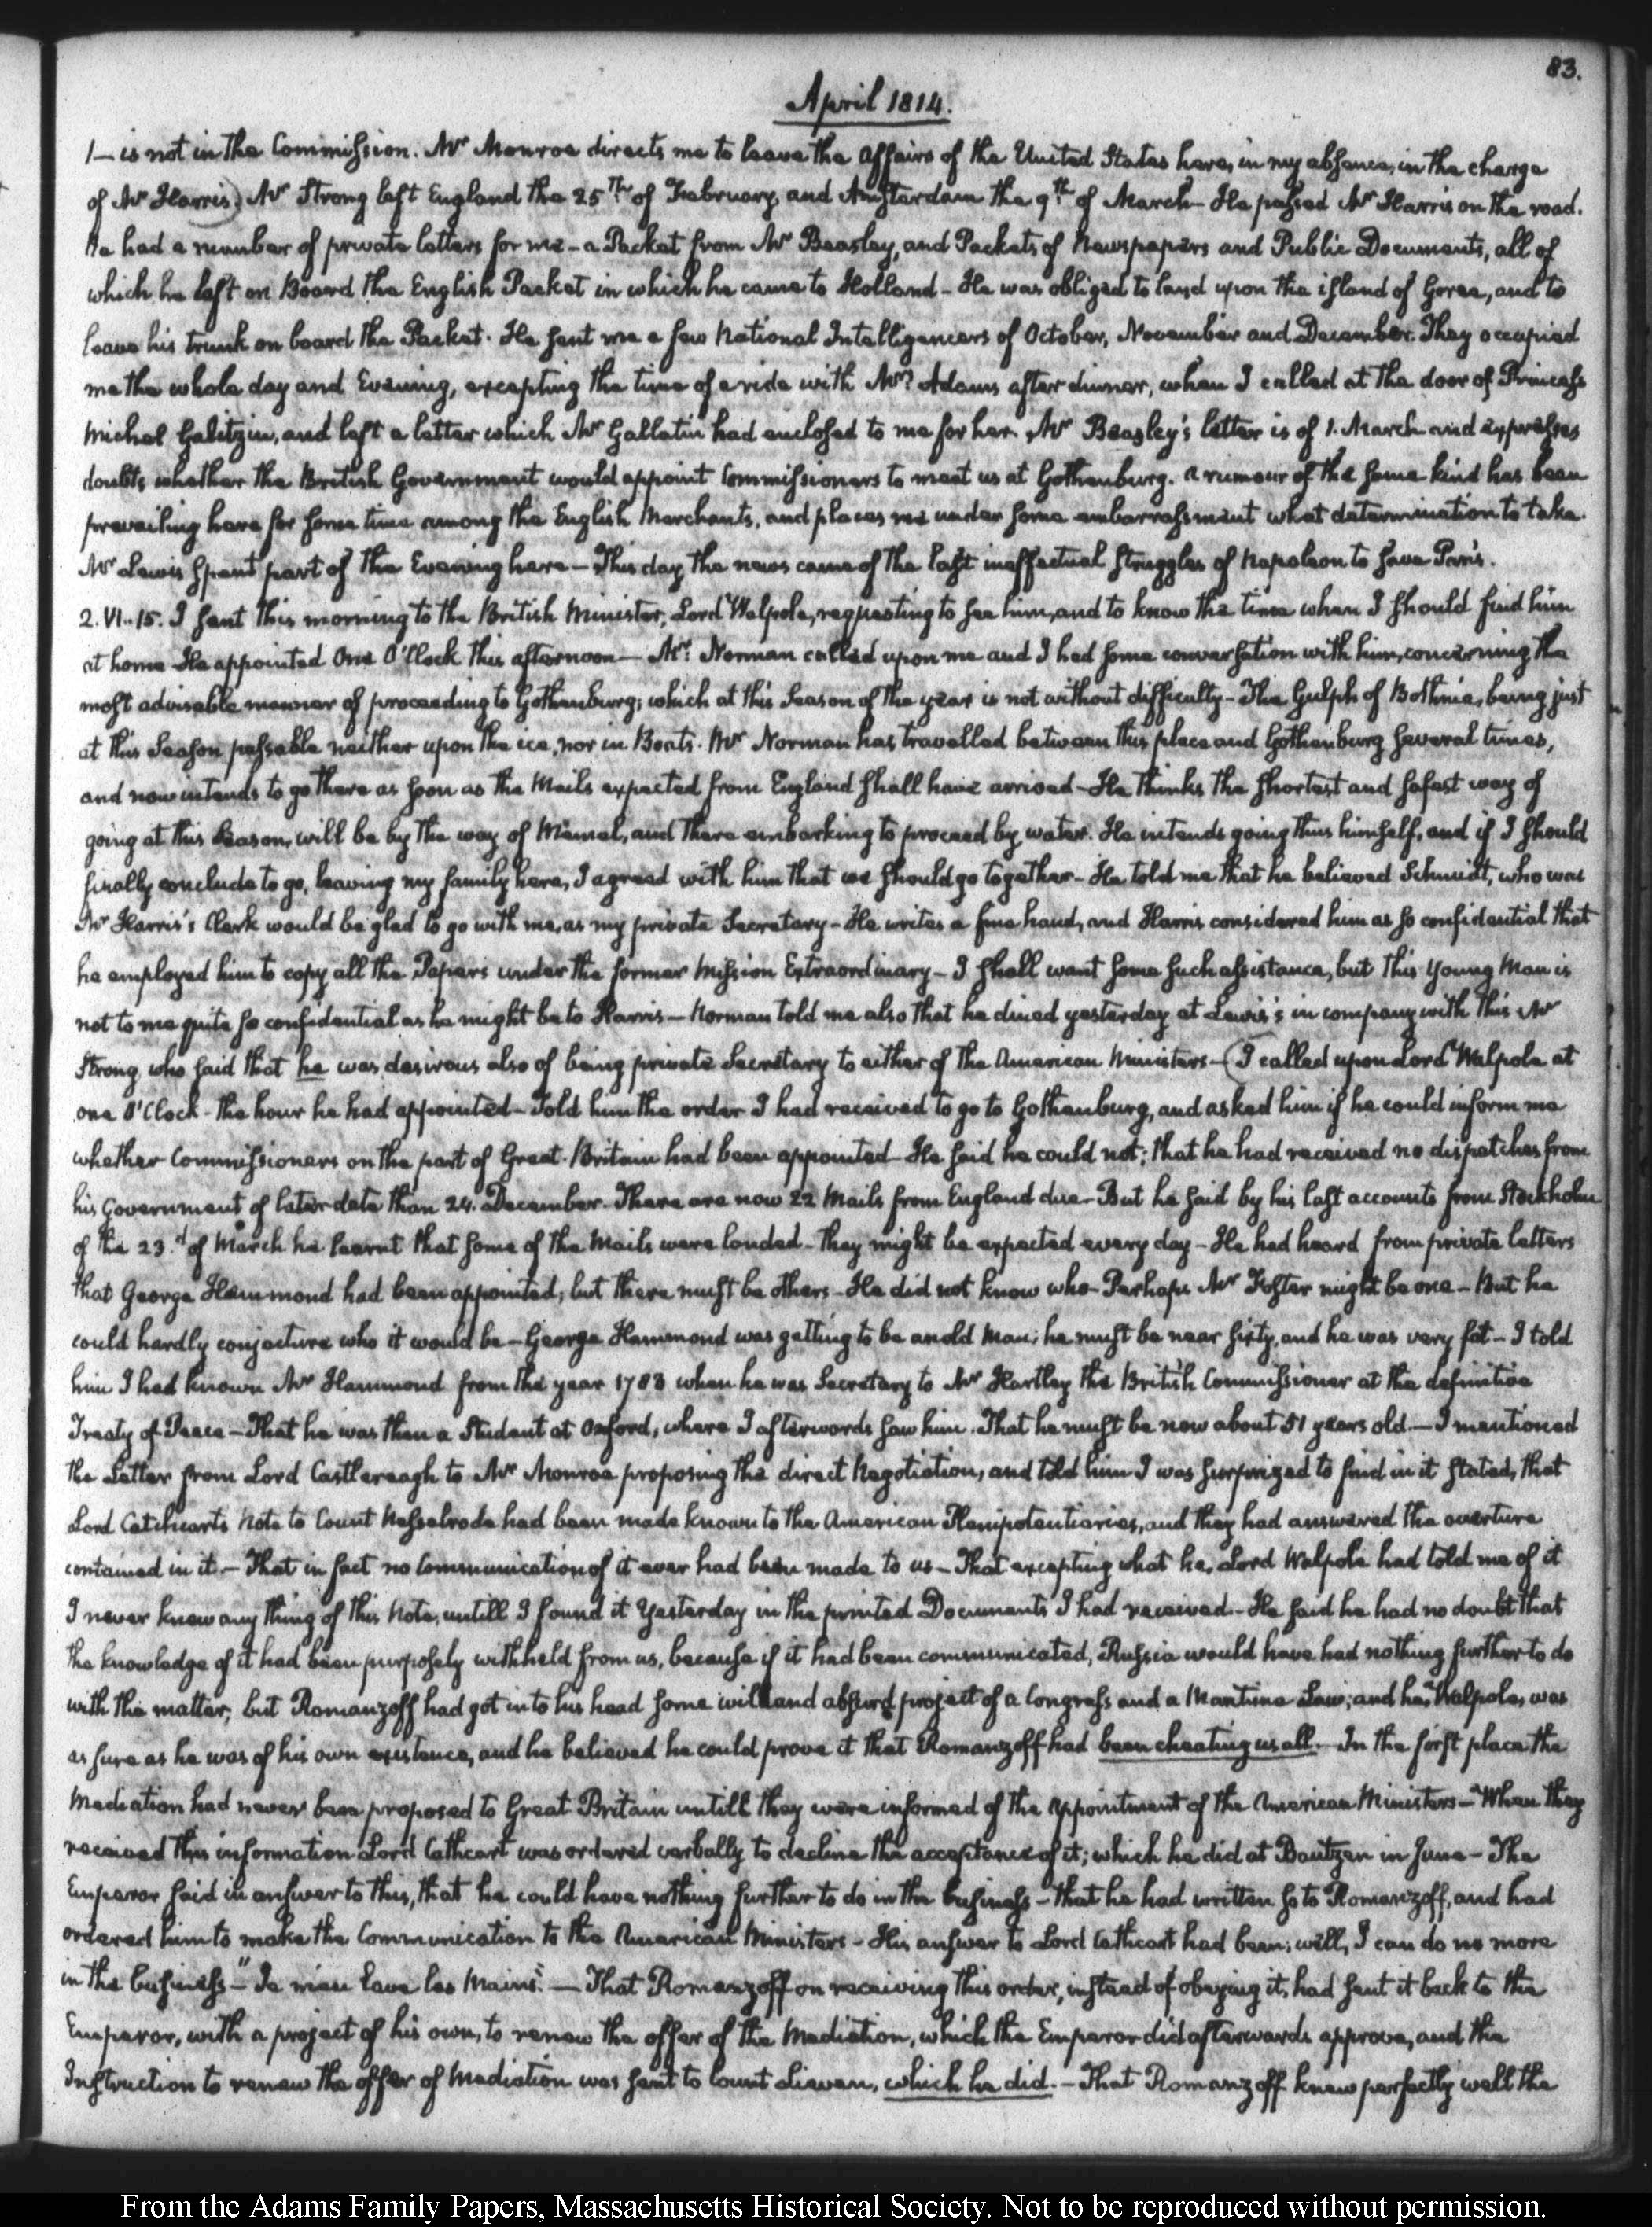 83.
April 1814.
1 — is not in the Commission. Mr Monroe directs me to leave the affairs of the United States here, in my absence, in the charge
of Mr Harris) Mr Strong left England the 25th of February, and Amsterdam the 9th of March — He passed Mr Harris on the road.
He had a number of private letters for me — a Packet from Mr Beasley, and Packets of Newspapers and Public Documents, all of
which he left on Board the English Packet in which he came to Holland — He was obliged to land upon the island of Goree, and to
leave his trunk on board the Packet. He sent me a few National Intelligencers of October, November and December. They occupied
me the whole day and Evening, excepting the time of a ride with Mrs Adams after dinner, when I called at the door of Princess
Michel Galitzin, and left a letter which Mr Gallatin had enclosed to me for her. Mr Beasley's letter is of 1. March and expresses
doubts whether the British Government would appoint Commissioners to meet us at Gothenburg. a rumour of the same kind has been
prevailing here for some time among the English Merchants, and places me under some embarrassment what determination to take.
Mr Lewis spent part of the Evening here — This day the news came of the last ineffectual struggles of Napoleon to save Paris.
2. VI..15. I sent this morning to the British Minister, Lord Walpole, requesting to see him, and to know the time when I should find him
at home — He appointed One O'Clock this afternoon — Mr: Norman called upon me and I had some conversation with him, concerning the
most advisable manner of proceeding to Gothenburg; which at this Season of the year is not without difficulty — The Gulph of Bothnia, being just
at this Season passable neither upon the ice, nor in Boats. Mr Norman has travelled between this place and Gothenburg several times,
and now intends to go there as soon as the Mails expected from England shall have arrived — He thinks the shortest and safest way of
going at this Season, will be by the way of Memel, and there embarking to proceed by water. He intends going thus himself, and if I should
finally conclude to go, leaving my family here, I agreed with him that we should go together — He told me that he believed Schmidt, who was
Mr Harris's Clerk would be glad to go with me, as my private Secretary — He writes a fine hand, and Harris considered him as so confidential that
he employed him to copy all the Papers under the former Mission Extraordinary — I shall want some such assistance, but this Young Man is
not to me quite so confidential as he might be to Harris — Norman told me also that he dined yesterday at Lewis's in company with this Mr
Strong, who said that he was desirous also of being private Secretary to either of the American Ministers — (I called upon Lord Walpole at
one O'Clock — the hour he had appointed — Told him the order I had received to go to Gothenburg, and asked him if he could inform me
whether Commissioners on the part of Great-Britain had been appointed — He said he could not; that he had received no dispatches from
his Government of later date than 24. December. There are now 22 Mails from England due — But he said by his last accounts from Stockholm
of the 23.d of March he learnt that some of the Mails were landed — they might be expected every day — He had heard from private letters
that George Hammond had been appointed; but there must be others — He did not know who — Perhaps Mr Foster might be one — But he
could hardly conjecture who it would be — George Hammond was getting to be an old Man; he must be near sixty, and he was very fat — I told
him I had known Mr Hammond from the year 1783 when he was Secretary to Mr Hartley the British Commissioner at the definitive
Treaty of Peace — That he was then a Student at Oxford, where I afterwords saw him. That he must be now about 51 years old. — I mentioned
the Letter from Lord Castlereagh to Mr Monroe proposing the direct Negotiation, and told him I was surprized to find in it stated, that
Lord Cathcarts Note to Count Nesselrode had been made known to the American Plenipotentiaries, and they had answered the overture
contained in it — That in fact no Communication of it ever had been made to us — That excepting what he, Lord Walpole had told me of it
I never knew any thing of this Note, untill I found it Yesterday in the printed Documents I had received — He said he had no doubt that
the knowledge of it had been purposely withheld from us, because if it had been communicated, Russia would have had nothing further to do
with the matter; but Romanzoff had got into his head some wild and absurd project of a Congress and a Maritime Law; and he, Walpole, was
as sure as he was of his own existence, and he believed he could prove it that Romanzoff had been cheating us all. — In the first place the
Mediation had never been proposed to Great Britain untill they were informed of the appointment of the American Ministers — When they
received this information Lord Cathcart was ordered verbally to decline the acceptance of it; which he did at Bautzen in June — The
Emperor said in answer to this, that he could have nothing further to do in the business — that he had written so to Romanzoff, and had
ordered him to make the Communication to the American Ministers — His answer to Lord Cathcart had been; well, I can do no more
in the business — "Je m'en lave les Mains". — That Romanzoff on receiving this order, instead of obeying it, had sent it back to the
Emperor, with a project of his own, to renew the offer of the Mediation, which the Emperor did afterwards approve, and the
Instruction to renew the offer of Mediation was sent to Count Lieven, which he did. — That Romanzoff knew perfectly well the
From the Adams Family Papers, Massachusetts Historical Society. Not to be reproduced without permission.